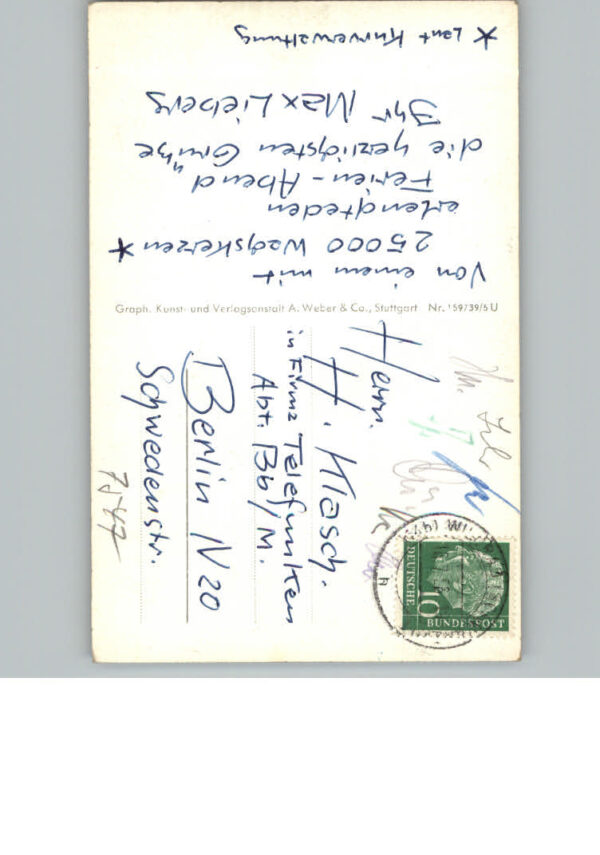 Von einem mit
25000 Wachskerzen *
erleuchteten
Ferien-Abend
die herzlichsten Grüße
Ihr Max Lieberg
* Laut Kurverwaltung
Graph. Kunst- und Verlagsanstalt A. Weber & Co., Stuttgart Nr. 159/39/5 U
Herrn.
H. Klasch.
in Firma Telefunken
Abt. Bb/M.
Berlin N 20
Schwedenstr.
10
DEUTSCHE
BUNDESPOST